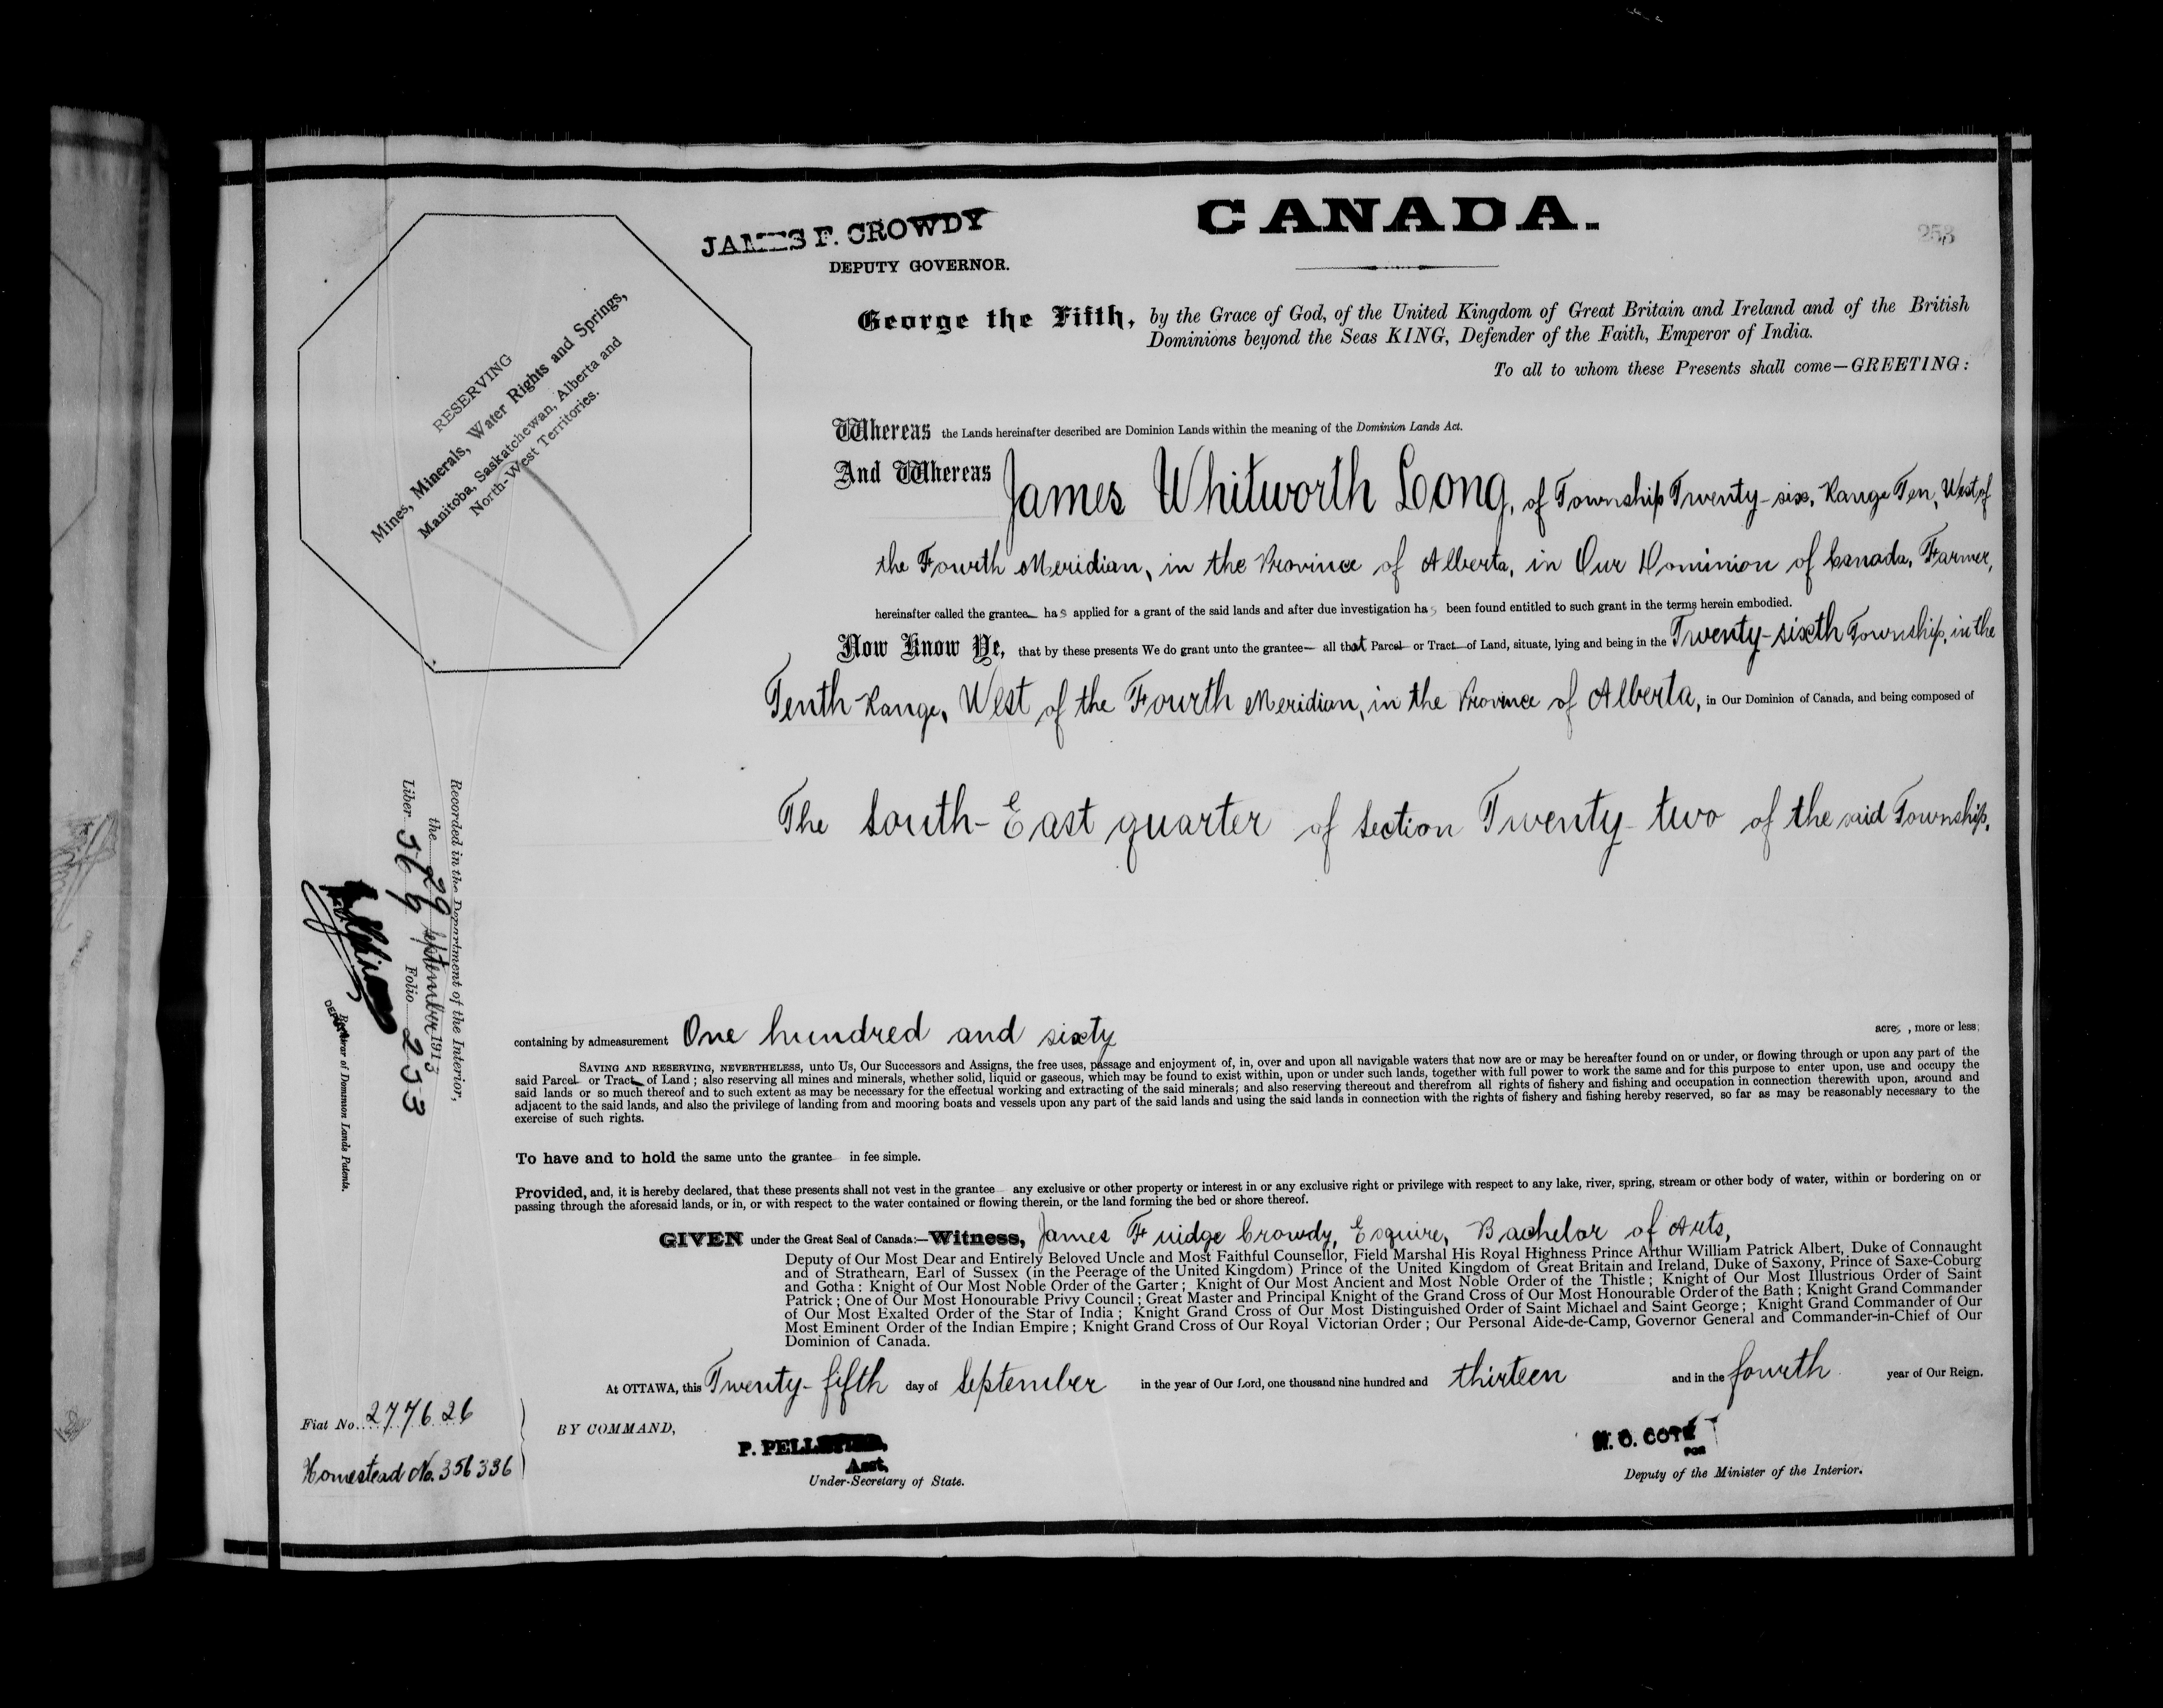 CANADA.
JAMES F. CROWDY
DEPUTY GOVERNOR.
253
RESERVING
Mines, Minerals, Water Rights and Springs,
Manitoba, Saskatchewan, Alberta and
North-West Territories.
George the Fifth, by the Grace of God, of the United Kingdom of Great Britain and Ireland and of the British
Dominions beyond the Seas KING, Defender of the Faith, Emperor of India.
To all to whom these Presents shall come—GREETING:
Whereas the Lands hereinafter described are Dominion Lands within the meaning of the Dominion Lands Act.
And Whereas James Whitworth Long, of Township Twenty-six, Range Ten, West of
the Fourth Meridian, in the Province of Alberta, in Our Dominion of Canada, Farmer,
hereinafter called the grantee has applied for a grant of the said lands and after due investigation has been found entitled to such grant in the terms herein embodied.
Now Know Ye, that by these presents We do grant unto the grantee— all that Parcel or Tract of Land, situate, lying and being in the Twenty-sixth Township, in the
Tenth Range, West of the Fourth Meridian, in the Province of Alberta, in Our Dominion of Canada, and being composed of
The South-East quarter of Section Twenty-two of the said Township,
containing by admeasurement One hundred and sixty acres, more or less;
SAVING AND RESERVING, NEVERTHELESS, unto Us, Our Successors and Assigns, the free uses, passage and enjoyment of, in, over and upon all navigable waters that now are or may be hereafter found on or under, or flowing through or upon any part of the
said Parcel or Tract of Land; also reserving all mines and minerals, whether solid, liquid or gaseous, which may be found to exist within, upon or under such lands, together with full power to work the same and for this purpose to enter upon, use and occupy the
said lands or so much thereof and to such extent as may be necessary for the effectual working and extracting of the said minerals; and also reserving thereout and therefrom all rights of fishery and fishing and occupation in connection therewith upon, around and
adjacent to the said lands, and also the privilege of landing from and mooring boats and vessels upon any part of the said lands and using the said lands in connection with the rights of fishery and fishing hereby reserved, so far as may be reasonably necessary to the
exercise of such rights.
To have and to hold the same unto the grantee in fee simple.
Provided, and, it is hereby declared, that these presents shall not vest in the grantee any exclusive or other property or interest in or any exclusive right or privilege with respect to any lake, river, spring, stream or other body of water, within or bordering on or
passing through the aforesaid lands, or in, or with respect to the water contained or flowing therein, or the land forming the bed or shore thereof.
GIVEN under the Great Seal of Canada:—Witness, James Fuidge Crowdy, Esquire, Bachelor of Arts,
Deputy of Our Most Dear and Entirely Beloved Uncle and Most Faithful Counsellor, Field Marshal His Royal Highness Prince Arthur William Patrick Albert, Duke of Connaught
and of Strathearn, Earl of Sussex (in the Peerage of the United Kingdom) Prince of the United Kingdom of Great Britain and Ireland, Duke of Saxony, Prince of Saxe-Coburg
and Gotha: Knight of Our Most Noble Order of the Garter; Knight of Our Most Ancient and Most Noble Order of the Thistle; Knight of Our Most Illustrious Order of Saint
Patrick; One of Our Most Honourable Privy Council; Great Master and Principal Knight of the Grand Cross of Our Most Honourable Order of the Bath; Knight Grand Commander
of Our Most Exalted Order of the Star of India; Knight Grand Cross of Our Most Distinguished Order of Saint Michael and Saint George; Knight Grand Commander of Our
Most Eminent Order of the Indian Empire; Knight Grand Cross of Our Royal Victorian Order; Our Personal Aide-de-Camp, Governor General and Commander-in-Chief of Our
Dominion of Canada.
At OTTAWA, this Twenty-fifth day of September in the year of Our Lord, one thousand nine hundred and thirteen and in the fourth year of Our Reign.
Fiat No. 277626
Homestead No. 356336
BY COMMAND,
P. PELLETIER,
Asst.
Under-Secretary of State.
N. O. COTÉ
FOR
Deputy of the Minister of the Interior.
Recorded in the Department of the Interior,
the 29 September 1913
Liber Folio 253
DEPUTY
Registrar of Dominion Lands Patents.